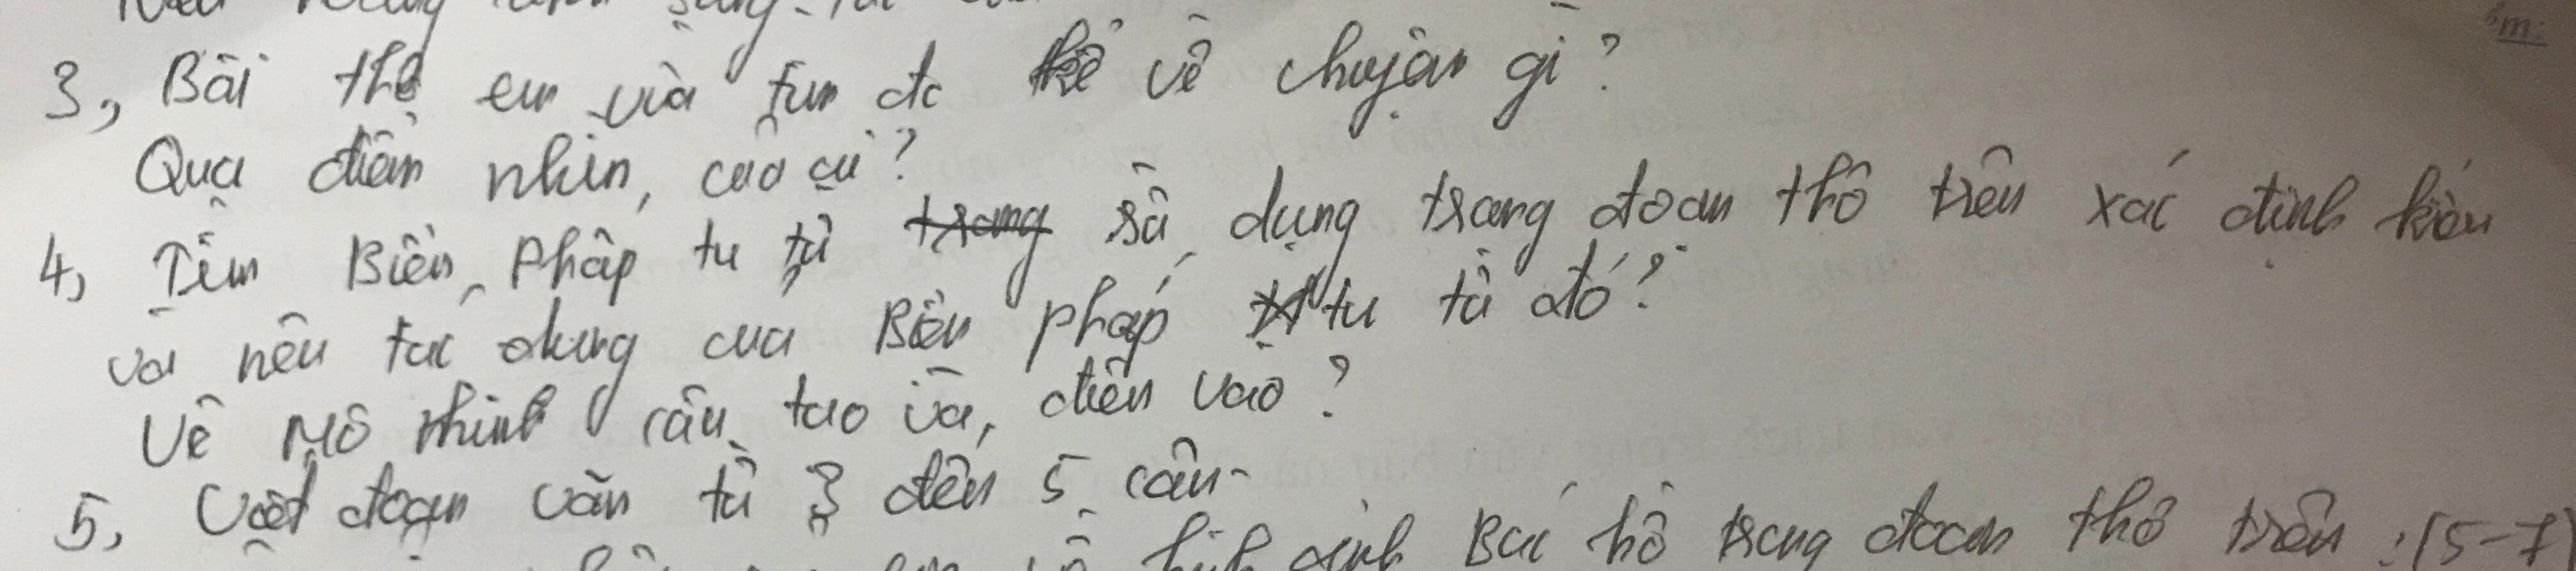 3, Bài thơ em vừa tìm đc kể về chuyện gì?
Qua điểm nhìn, của ai?
4, Tìm Biện pháp tu từ sử dụng trong đoạn thơ trên xác định kiểu
và nêu tác dụng của Biện pháp tu từ đó?
Vẽ Mô hình cấu tạo và, điền vào?
5, Viết đoạn văn từ 3 đến 5 câu
hình ảnh Bác hồ trong đoạn thơ trên: (5-7)